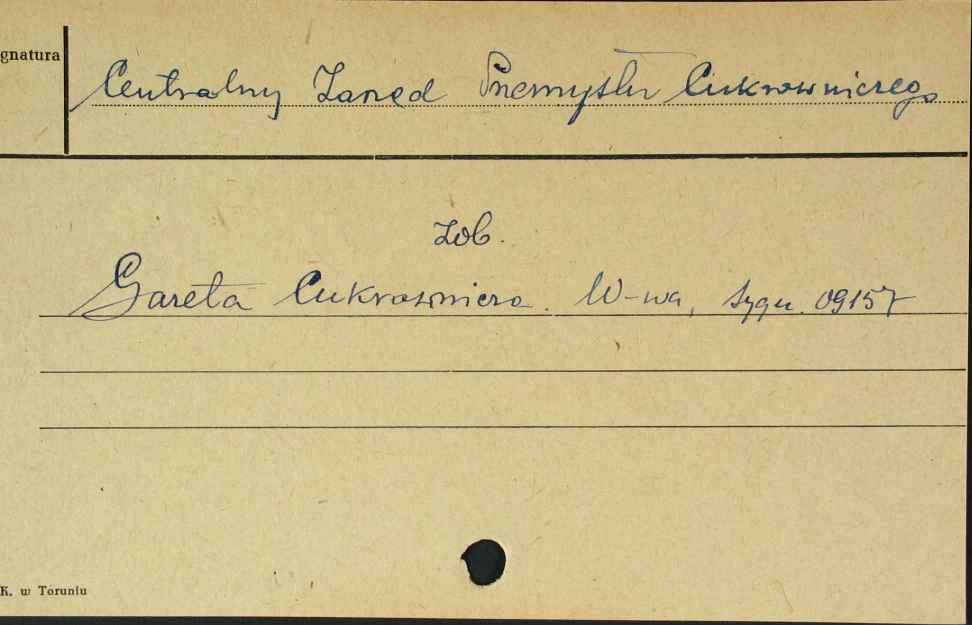 gnatura
Centralny Zarząd Przemysłu Cukrowniczego
Zob.
Gazeta Cukrownicza. W-wa, sygn. 09157
K. w Toruniu